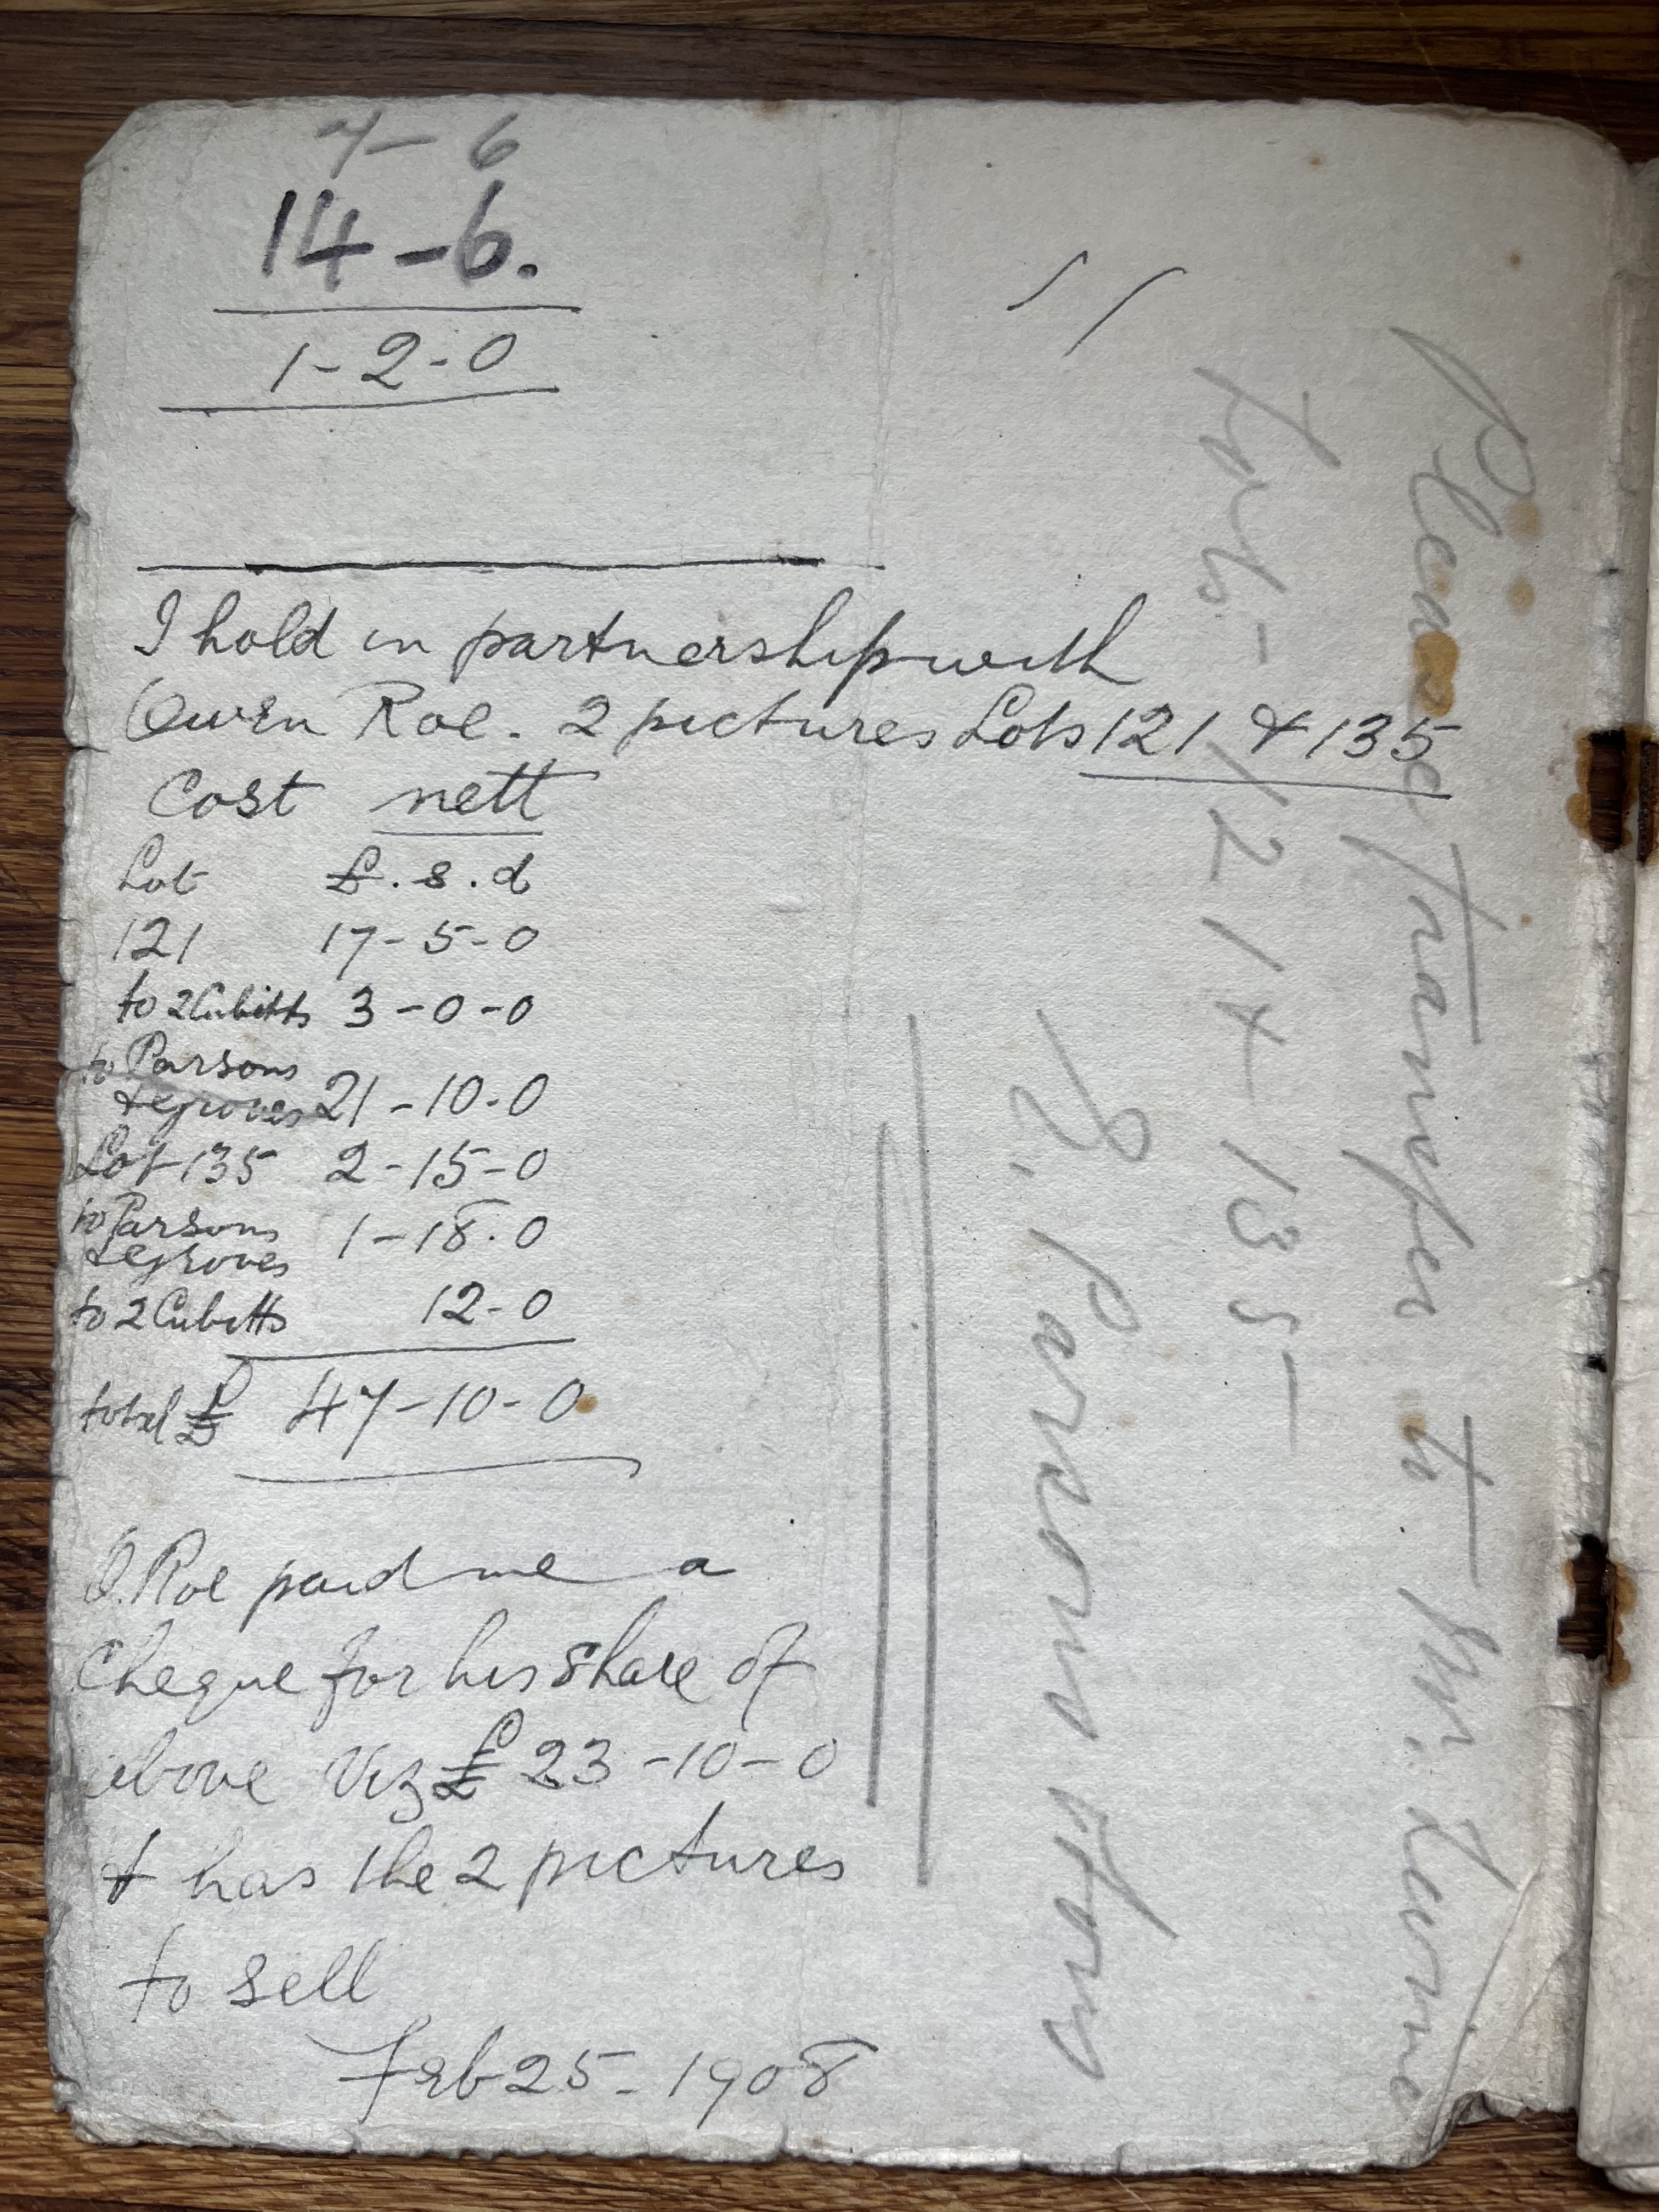 7-6
14-6.
1-2-0
I hold in partnership with
Owen Roe. 2 pictures Lots 121 & 135
Cost nett
Lot £.s.d
121 17-5-0
to 2 Cubitts 3-0-0
to Parsons
& egroves 21-10-0
Lot 135 2-15-0
to Parsons
& egroves 1-18.0
to 2 Cubitts 12-0
total £ 47-10-0
O. Roe paid me a
Cheque for his share of
above Viz £23-10-0
& has the 2 pictures
to sell
Feb 25-1908
Please Transfer to Mr.
Lots- 121 & 135-
Parsons